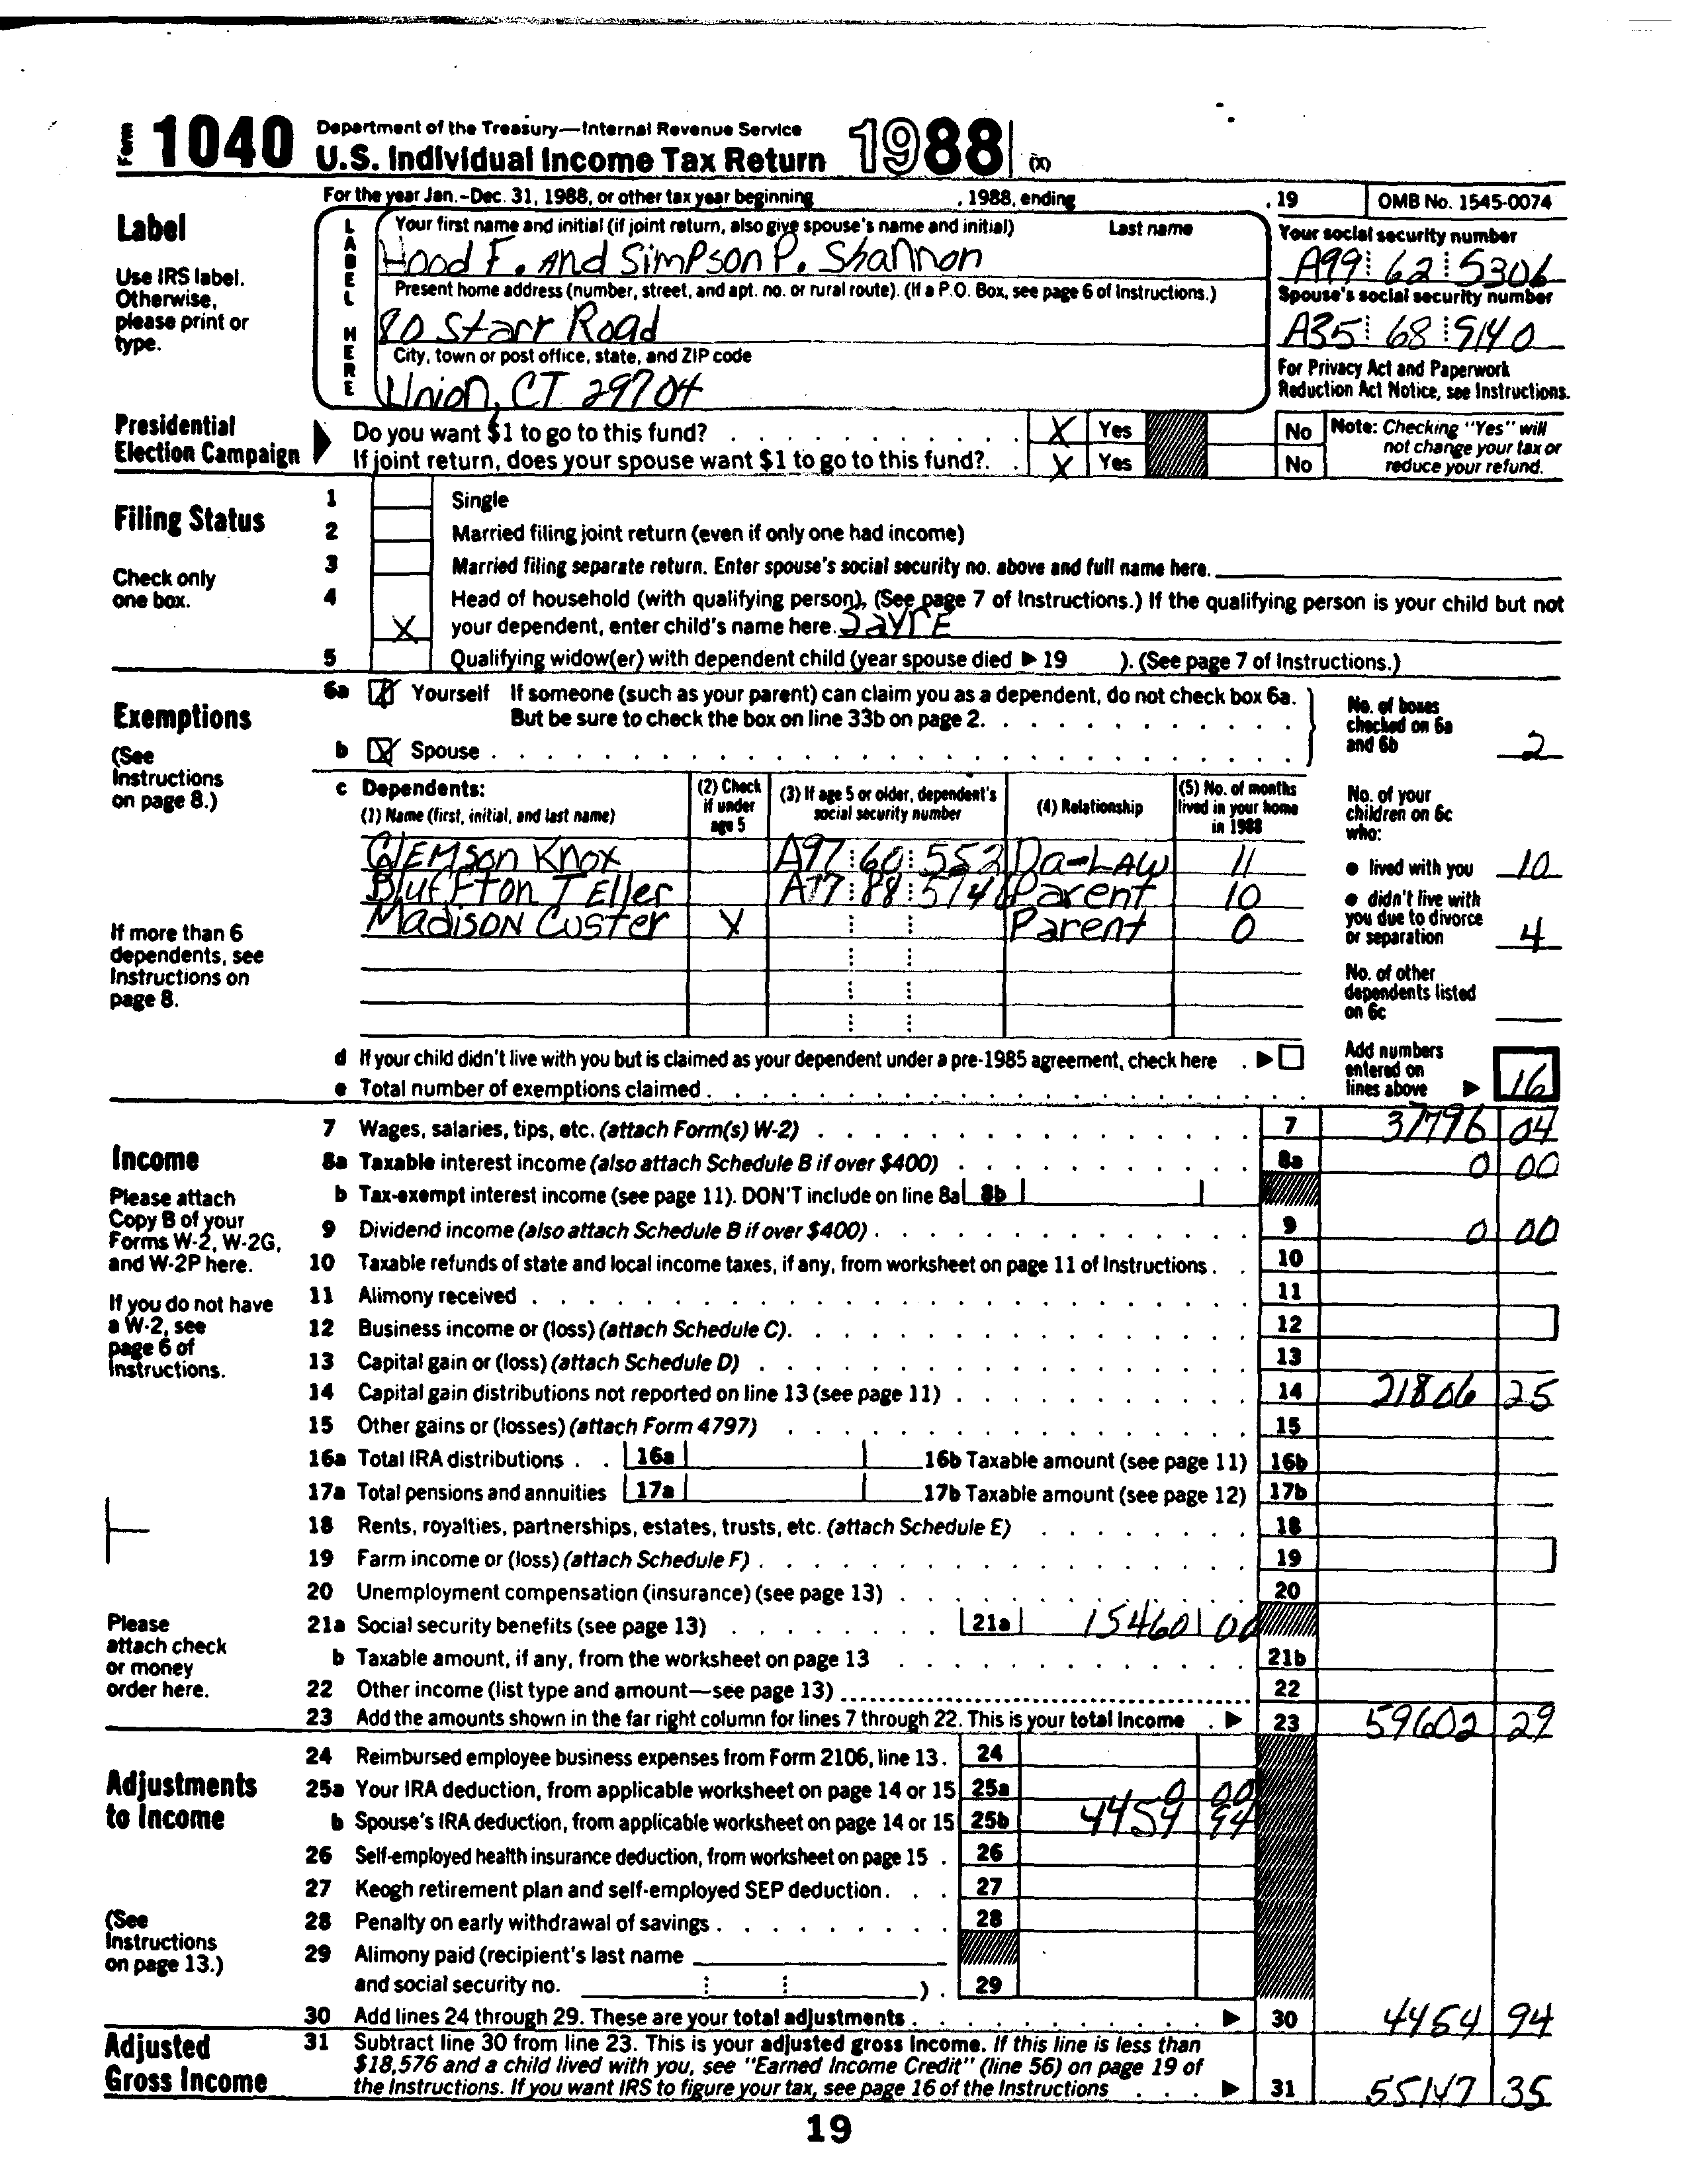 Form 1040 Department of the Treasury—Internal Revenue Service
U.S. Individual Income Tax Return 1988 (X)
For the year Jan.-Dec. 31, 1988, or other tax year beginning , 1988, ending , 19 OMB No. 1545-0074
Label
Use IRS label.
Otherwise,
please print or
type.
LABEL HERE
Your first name and initial (if joint return, also give spouse's name and initial) Last name
Hood F. And Simpson P. Shannon
Present home address (number, street, and apt. no. or rural route). (If a P.O. Box, see page 6 of Instructions.)
80 Starr Road
City, town or post office, state, and ZIP code
Union, CT 29704
Your social security number
A99 62 5306
Spouse's social security number
A35 68 9140
For Privacy Act and Paperwork
Reduction Act Notice, see Instructions.
Presidential
Election Campaign
Do you want $1 to go to this fund? X Yes No
If joint return, does your spouse want $1 to go to this fund?. X Yes No
Note: Checking "Yes" will
not change your tax or
reduce your refund.
Filing Status
Check only
one box.
1 Single
2 Married filing joint return (even if only one had income)
3 Married filing separate return. Enter spouse's social security no. above and full name here.
4 Head of household (with qualifying person). (See page 7 of Instructions.) If the qualifying person is your child but not
X your dependent, enter child's name here. SayrE
5 Qualifying widow(er) with dependent child (year spouse died ▶ 19 ). (See page 7 of Instructions.)
Exemptions
(See
Instructions
on page 8.)
If more than 6
dependents, see
Instructions on
page 8.
6a X Yourself If someone (such as your parent) can claim you as a dependent, do not check box 6a.
But be sure to check the box on line 33b on page 2.
b X Spouse
No. of boxes
checked on 6a
and 6b 2
c Dependents:
(1) Name (first, initial, and last name)
(2) Check
if under
age 5
(3) If age 5 or older, dependent's
social security number
(4) Relationship
(5) No. of months
lived in your home
in 1988
ClEMson Knox A97 60 552 Da-LAW 11
Bluffton T Eller A77 88 5748 Parent 10
Madison Custer X Parent 0
No. of your
children on 6c
who:
● lived with you 10
● didn't live with
you due to divorce
or separation 4
No. of other
dependents listed
on 6c
d If your child didn't live with you but is claimed as your dependent under a pre-1985 agreement, check here
e Total number of exemptions claimed
Add numbers
entered on
lines above ▶ 16
Income
Please attach
Copy B of your
Forms W-2, W-2G,
and W-2P here.
If you do not have
a W-2, see
page 6 of
Instructions.
Please
attach check
or money
order here.
7 Wages, salaries, tips, etc. (attach Form(s) W-2) 7 37796 04
8a Taxable interest income (also attach Schedule B if over $400) 8a 0 00
b Tax-exempt interest income (see page 11). DON'T include on line 8a 8b
9 Dividend income (also attach Schedule B if over $400) 9 0 00
10 Taxable refunds of state and local income taxes, if any, from worksheet on page 11 of Instructions 10
11 Alimony received 11
12 Business income or (loss) (attach Schedule C) 12
13 Capital gain or (loss) (attach Schedule D) 13
14 Capital gain distributions not reported on line 13 (see page 11) 14 21806 25
15 Other gains or (losses) (attach Form 4797) 15
16a Total IRA distributions 16a 16b Taxable amount (see page 11) 16b
17a Total pensions and annuities 17a 17b Taxable amount (see page 12) 17b
18 Rents, royalties, partnerships, estates, trusts, etc. (attach Schedule E) 18
19 Farm income or (loss) (attach Schedule F) 19
20 Unemployment compensation (insurance) (see page 13) 20
21a Social security benefits (see page 13) 21a 15460 00
b Taxable amount, if any, from the worksheet on page 13 21b
22 Other income (list type and amount—see page 13) 22
23 Add the amounts shown in the far right column for lines 7 through 22. This is your total income ▶ 23 59602 29
Adjustments
to Income
(See
Instructions
on page 13.)
24 Reimbursed employee business expenses from Form 2106, line 13. 24
25a Your IRA deduction, from applicable worksheet on page 14 or 15 25a 0 00
b Spouse's IRA deduction, from applicable worksheet on page 14 or 15 25b 4454 94
26 Self-employed health insurance deduction, from worksheet on page 15 26
27 Keogh retirement plan and self-employed SEP deduction 27
28 Penalty on early withdrawal of savings 28
29 Alimony paid (recipient's last name
and social security no. ) 29
30 Add lines 24 through 29. These are your total adjustments ▶ 30 4454 94
Adjusted
Gross Income
31 Subtract line 30 from line 23. This is your adjusted gross income. If this line is less than
$18,576 and a child lived with you, see "Earned Income Credit" (line 56) on page 19 of
the Instructions. If you want IRS to figure your tax, see page 16 of the Instructions ▶ 31 55147 35
19